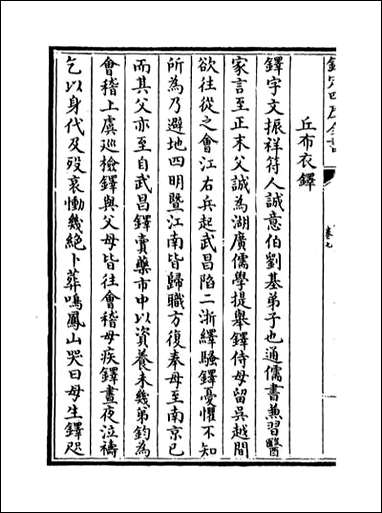 欽定四庫全書
卷九
丘布衣鐸
鐸字文振祥符人誠意伯劉基弟子也通儒書兼習醫
家言至正末父誠為湖廣儒學提舉鐸侍母留吳越間
欲往從之會江右兵起武昌陷二浙繹騷鐸憂懼不知
所為乃避地四明暨江南皆歸職方復奉母至南京已
而其父亦至自武昌鐸賣藥市中以資養未幾弟鈞為
會稽上虞巡檢鐸與父母皆往會稽母疾鐸晝夜泣禱
乞以身代及歿哀慟幾絕卜葬鳴鳳山哭曰母生鐸咫